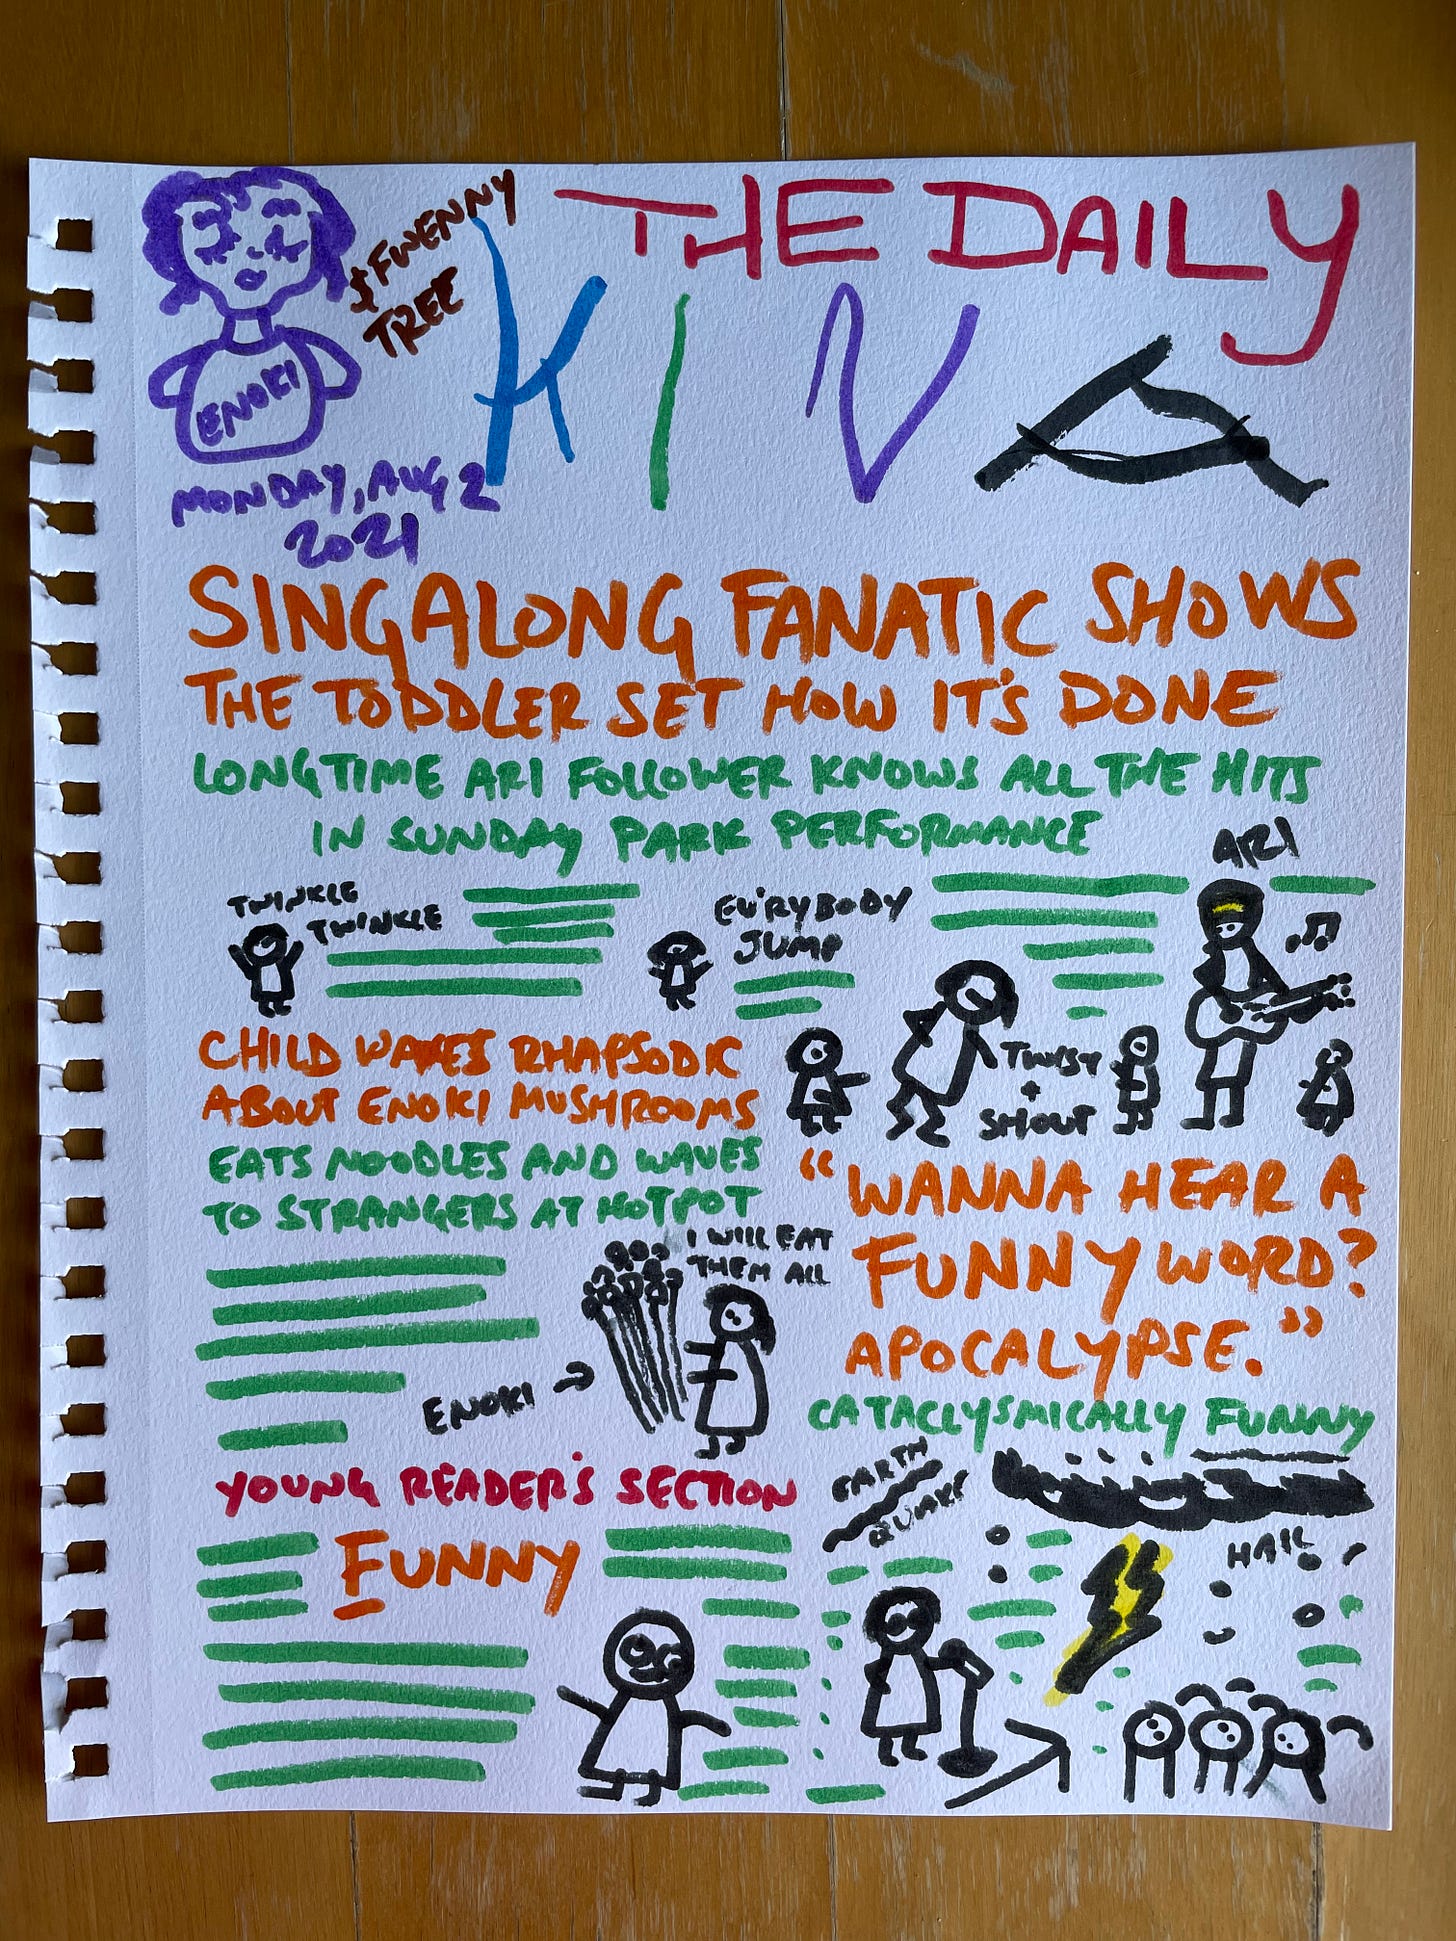 THE DAILY
KIVA
$FWENNY
TREE
ENOKI
MONDAY, AUG 2
2021
SINGALONG FANATIC SHOWS
THE TODDLER SET HOW IT'S DONE
LONGTIME ARI FOLLOWER KNOWS ALL THE HITS
IN SUNDAY PARK PERFORMANCE
ARI
TWINKLE
TWINKLE
EV'RYBODY
JUMP
TWIST
+
SHOUT
CHILD WAXES RHAPSODIC
ABOUT ENOKI MUSHROOMS
EATS NOODLES AND WAVES
TO STRANGERS AT HOTPOT
I WILL EAT
THEM ALL
ENOKI →
"WANNA HEAR A
FUNNY WORD?
APOCALYPSE."
CATACLYSMICALLY FUNNY
EARTH
QUAKE
HAIL
YOUNG READER'S SECTION
FUNNY